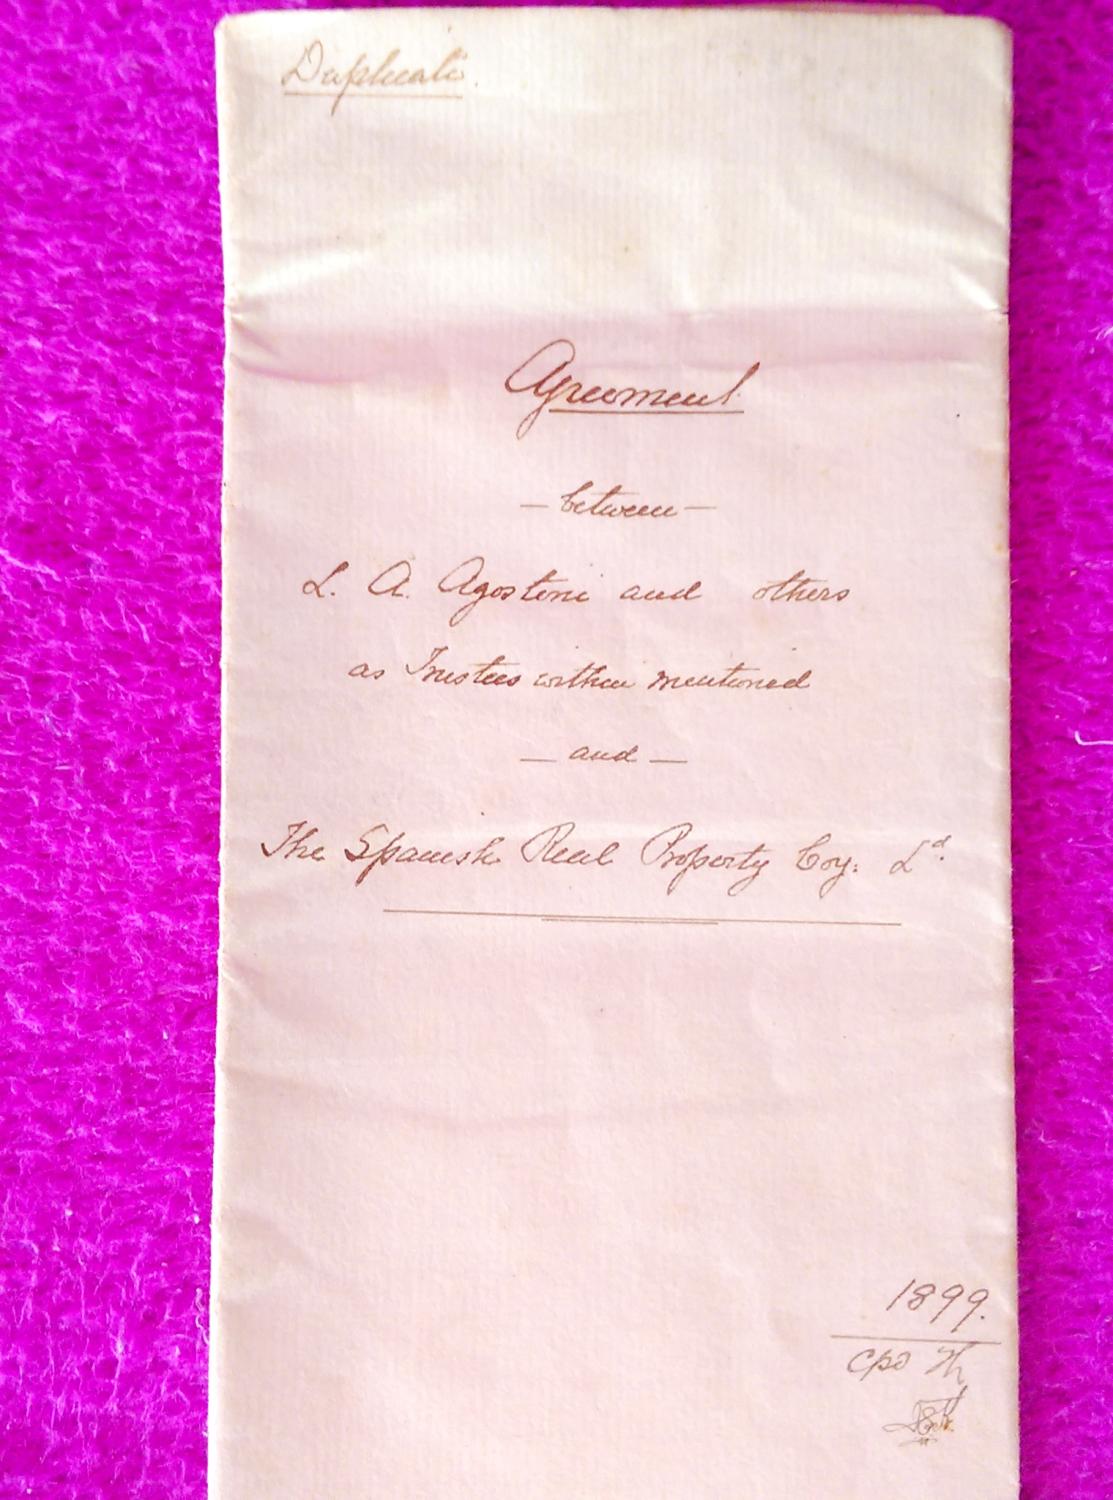 Duplicate
Agreement
— between —
L. A. Agostoni and others
as Trustees within mentioned
— and —
The Spanish Real Property Coy: Ld.
1899.